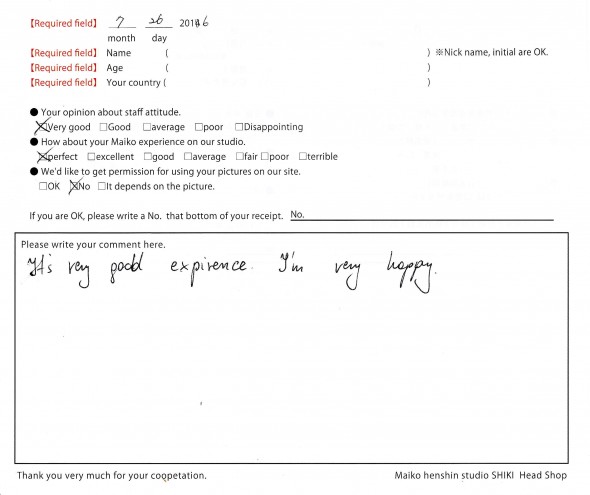 【Required field】 7 26 20146
month day
【Required field】 Name ( ) ※Nick name, initial are OK.
【Required field】 Age ( )
【Required field】 Your country ( )
● Your opinion about staff attitude.
☒Very good □Good □average □poor □Disappointing
● How about your Maiko experience on our studio.
☒perfect □excellent □good □average □fair □poor □terrible
● We'd like to get permission for using your pictures on our site.
□OK ☒No □It depends on the picture.
If you are OK, please write a No. that bottom of your receipt. No.
Please write your comment here.
It's very good expirence. I'm very happy.
Thank you very much for your coopetation. Maiko henshin studio SHIKI Head Shop